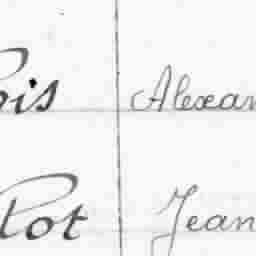 ois Alexan
lot Jean